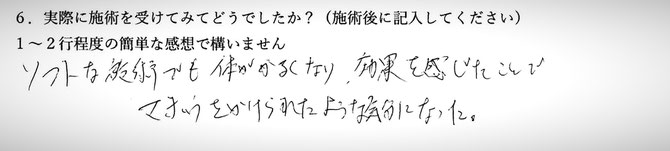 6．実際に施術を受けてみてどうでしたか？（施術後に記入してください）
1～2行程度の簡単な感想で構いません
ソフトな施術でも体がかるくなり、効果を感じたことで
をかけられたような気分になった。